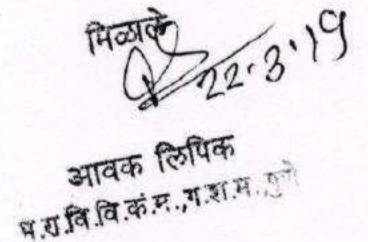 मिळाले
22.3.19
आवक लिपिक
म.रा.वि.वि.कं.म.,ग.शा.म.,पुणे